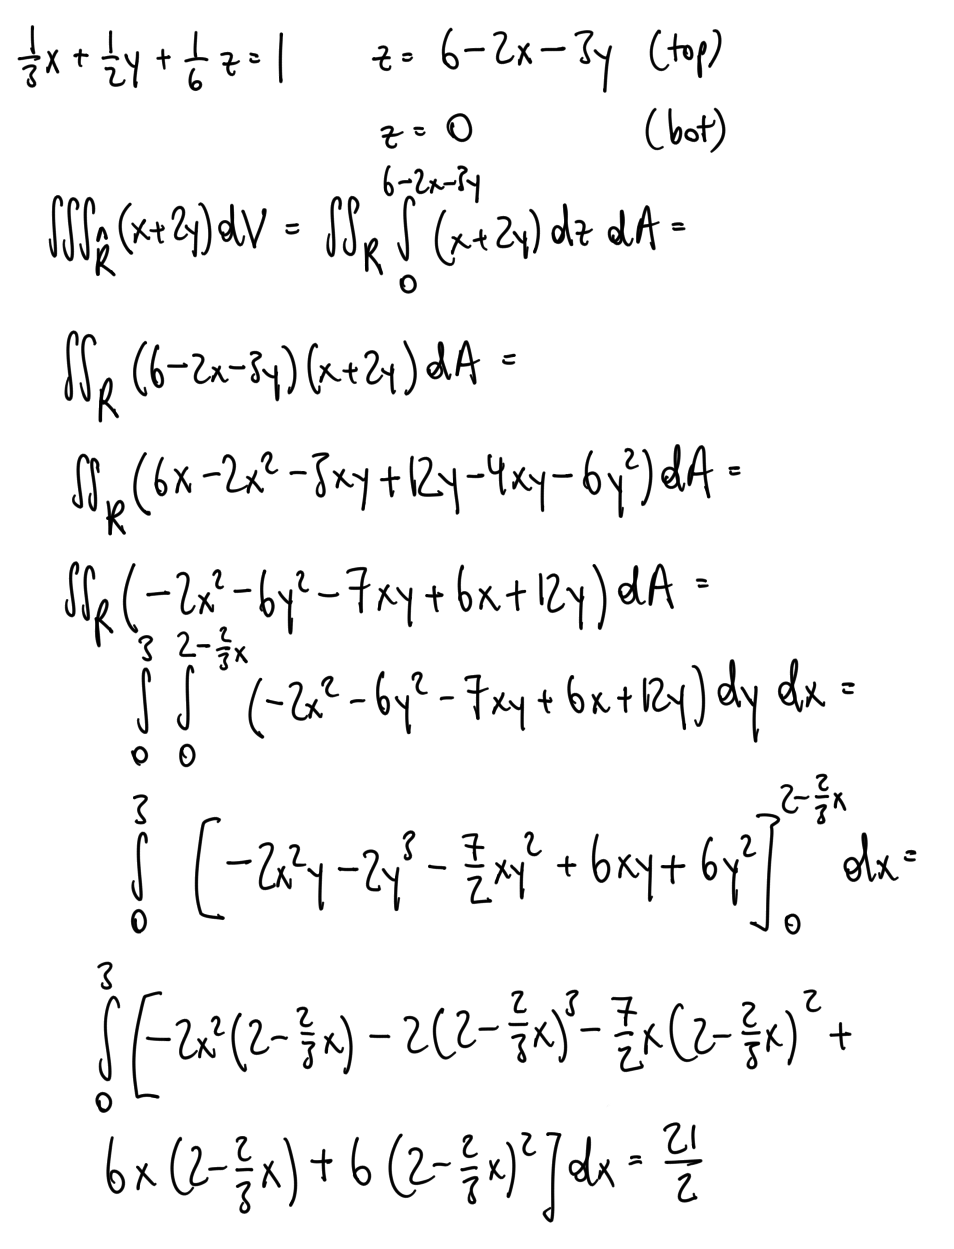 1/3 x + 1/2 y + 1/6 z = 1 z = 6 - 2x - 3y (top)
z = 0 (bot)
∭_R̂ (x+2y) dV = ∬_R ∫_0^{6-2x-3y} (x+2y) dz dA =
∬_R (6-2x-3y)(x+2y) dA =
∬_R (6x - 2x² - 3xy + 12y - 4xy - 6y²) dA =
∬_R (-2x² - 6y² - 7xy + 6x + 12y) dA =
∫_0^3 ∫_0^{2-2/3 x} (-2x² - 6y² - 7xy + 6x + 12y) dy dx =
∫_0^3 [-2x²y - 2y³ - 7/2 xy² + 6xy + 6y²]_0^{2-2/3 x} dx =
∫_0^3 [-2x²(2-2/3 x) - 2(2-2/3 x)³ - 7/2 x(2-2/3 x)² +
6x(2-2/3 x) + 6(2-2/3 x)²] dx = 21/2